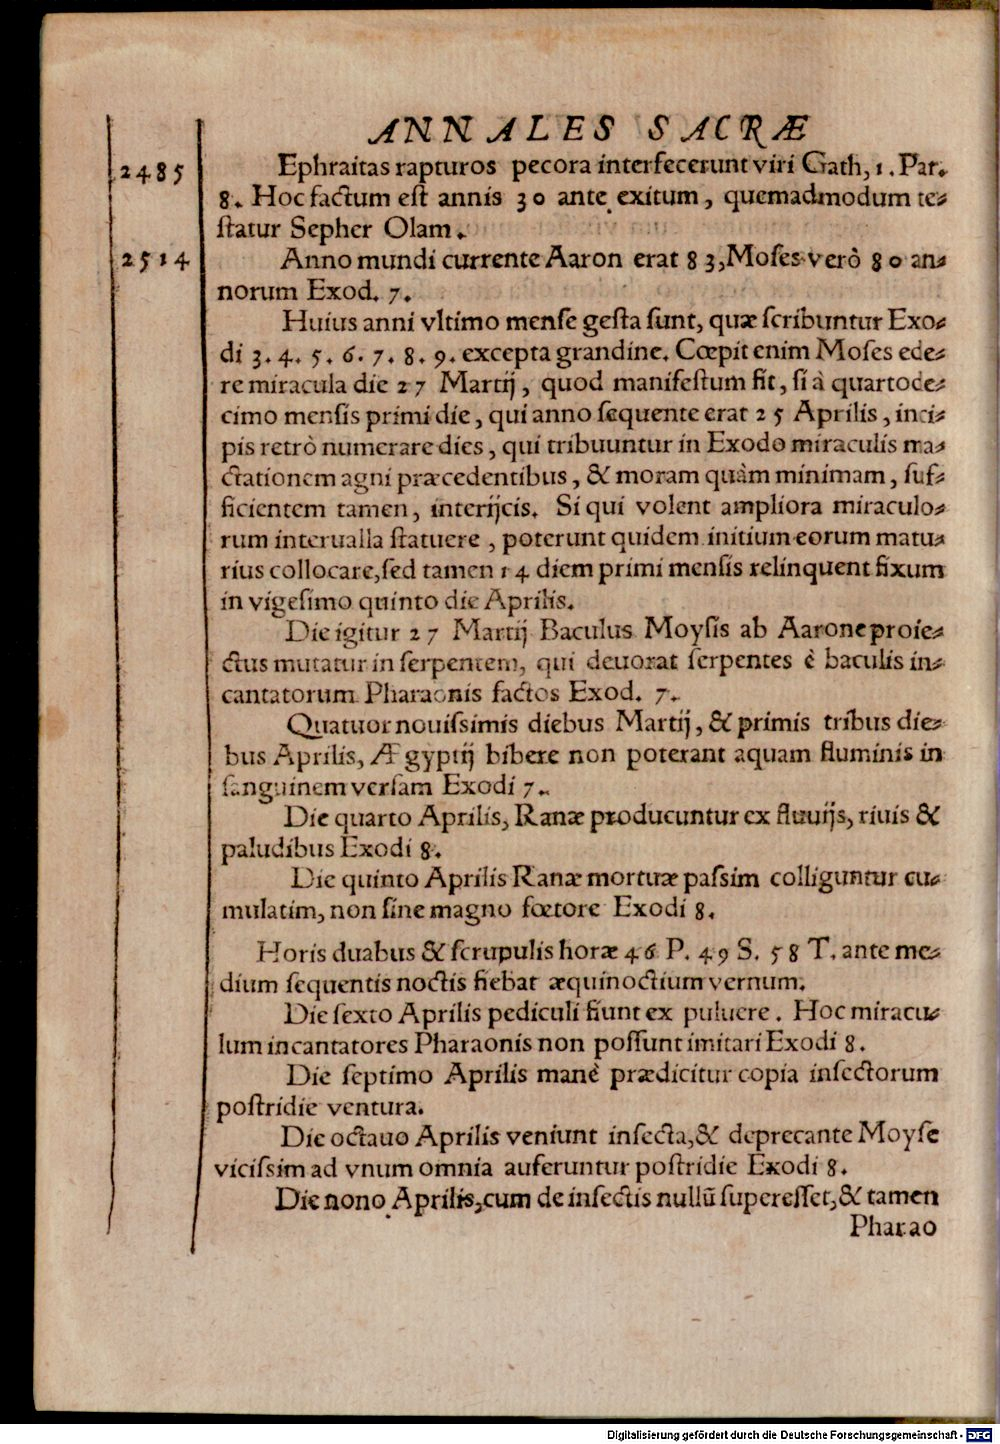 ANNALES SACRÆ
2485 Ephraitas rapturos pecora interfecerunt viri Gath, 1. Par.
8. Hoc factum eſt annis 30 ante exitum, quemadmodum te-
ſtatur Sepher Olam.
2514 Anno mundi currente Aaron erat 83, Moſes verò 80 an-
norum Exod. 7.
Huius anni vltimo menſe geſta ſunt, quæ ſcribuntur Exo-
di 3. 4. 5. 6. 7. 8. 9. excepta grandine. Cœpit enim Moſes ede-
re miracula die 27 Martij, quod manifeſtum fit, ſi à quartode-
cimo menſis primi die, qui anno ſequente erat 25 Aprilis, inci-
pis retrò numerare dies, qui tribuuntur in Exodo miraculis ma-
ctationem agni præcedentibus, & moram quàm minimam, ſuf-
ficientem tamen, interijcis. Si qui volent ampliora miraculo-
rum interualla ſtatuere, poterunt quidem initium eorum matu-
rius collocare, ſed tamen 14 diem primi menſis relinquent fixum
in vigeſimo quinto die Aprilis.
Die igitur 27 Martij Baculus Moyſis ab Aarone proie-
ctus mutatur in ſerpentem, qui deuorat ſerpentes è baculis in-
cantatorum Pharaonis factos Exod. 7.
Quatuor nouiſsimis diebus Martij, & primis tribus die-
bus Aprilis, Ægyptij bibere non poterant aquam fluminis in
ſanguinem verſam Exodi 7.
Die quarto Aprilis, Ranæ producuntur ex fluuijs, riuis &
paludibus Exodi 8.
Die quinto Aprilis Ranæ mortuæ paſsim colliguntur cu-
mulatim, non ſine magno fœtore Exodi 8.
Horis duabus & ſcrupulis horæ 46 P. 49 S. 58 T. ante me-
dium ſequentis noctis fiebat æquinoctium vernum.
Die ſexto Aprilis pediculi fiunt ex puluere. Hoc miracu-
lum incantatores Pharaonis non poſſunt imitari Exodi 8.
Die ſeptimo Aprilis manè prædicitur copia inſectorum
poſtridie ventura.
Die octauo Aprilis veniunt inſecta, & deprecante Moyſe
viciſsim ad vnum omnia auferuntur poſtridie Exodi 8.
Die nono Aprilis, cum de inſectis nullū ſupereſſet, & tamen
Pharao
Digitalisierung gefördert durch die Deutsche Forschungsgemeinschaft - DFG